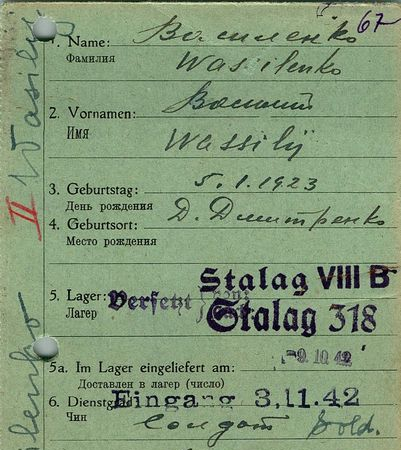 67
Василенко
1. Name:
Фамилия
Wassilenko
2. Vornamen: Василий
Имя
Wassilij
3. Geburtstag: 5.1.1923
День рождения
4. Geburtsort: Д. Дмитренко
Место рождения
Stalag VIII B
5. Lager: Versetzt
Лагер
Stalag 318
9.10.42
5a. Im Lager eingeliefert am:
Доставлен в лагер (число)
6. Dienstgrad: Eingang 3.11.42
Чин
Солдат Sold.
II Wasily